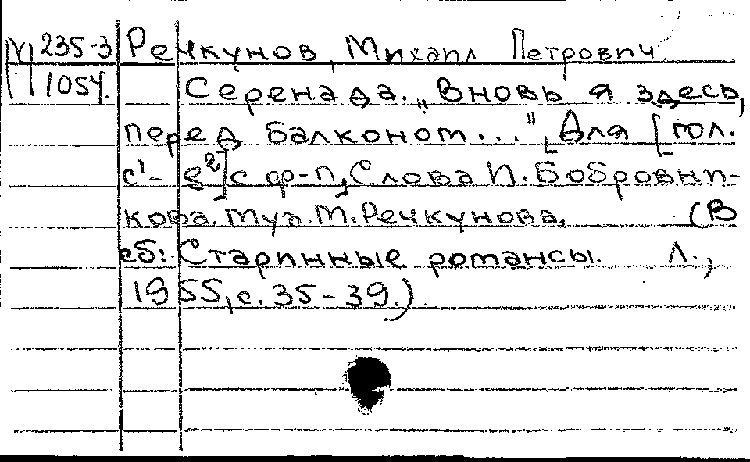 М 235-3 Речкунов, Михаил Петрович
П 1054. Серенада. „Вновь я здесь,
перед балконом...", Для [гол.
с¹- g²] с ф-п, Слова П. Бобровни-
кова. Муз. М. Речкунова. (В
сб: Старинные романсы. Л.,
1955, с. 35-39.)